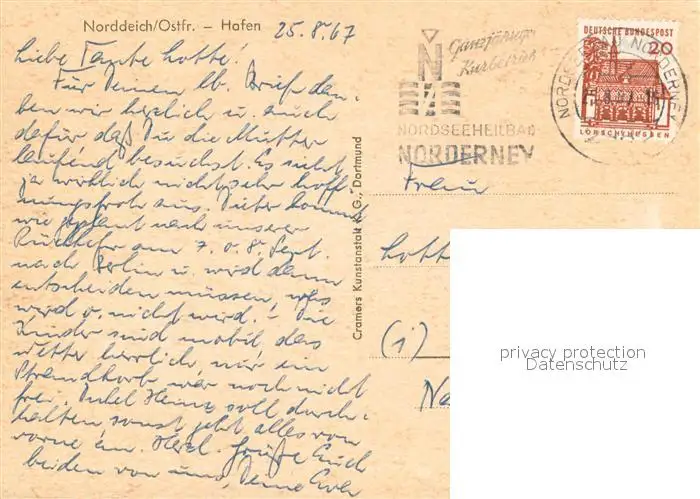 Norddeich/Ostfr. – Hafen 25.8.67
Liebe Tante Lotte!
Für Deinen lb. Brief dan-
ken wir herzlich u. auch
dafür daß Du die Mutter
laufend besuchst. Es sieht
ja wirklich nicht sehr hoff-
nungsfroh aus. Dieter kommt
wie geplant nach unserer
Rückkehr am 7. o. 8. Sept.
nach Berlin u. wird dann
entscheiden müssen, was
wird o. nicht wird. Die
Kinder sind mobil, das
Wetter herrlich, nur ein
Strandkorb war noch nicht
frei. Onkel Heinz soll durch-
halten sonst geht alles von
vorne an. Herzl. Grüße Euch
beiden von uns, Deine
Cramers Kunstanstalt K.G., Dortmund
Ganzjähriger
Kurbetrieb
N
NORDSEEHEILBAD
NORDERNEY
NORDSEEBAD NORDERNEY
DEUTSCHE BUNDESPOST
20
LORSCH/HESSEN
Frau
Lotte
(1)
privacy protection
Datenschutz